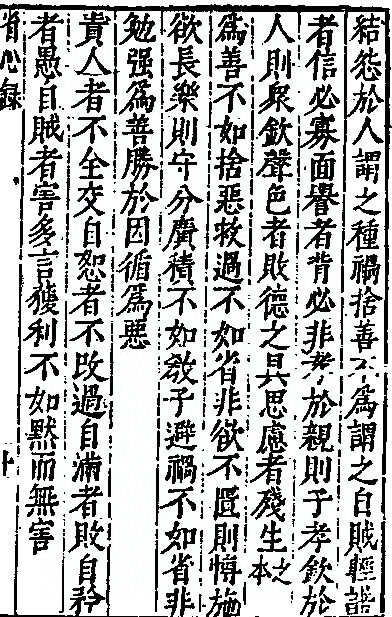 結怨於人謂之種禍捨善不為謂之自賊輕諾
者信必寡面譽者背必非孝於親則子孝欽於
人則衆欽聲色者敗德之具思慮者殘生之本
為善不如捨惡救過不如省非欲不匱則愽施
欲長樂則守分廣積不如教子避禍不如省非
勉强為善勝於因循為惡
責人者不全交自恕者不改過自滿者敗自矜
者愚自賊者害多言獲利不如默而無害
省心録
十